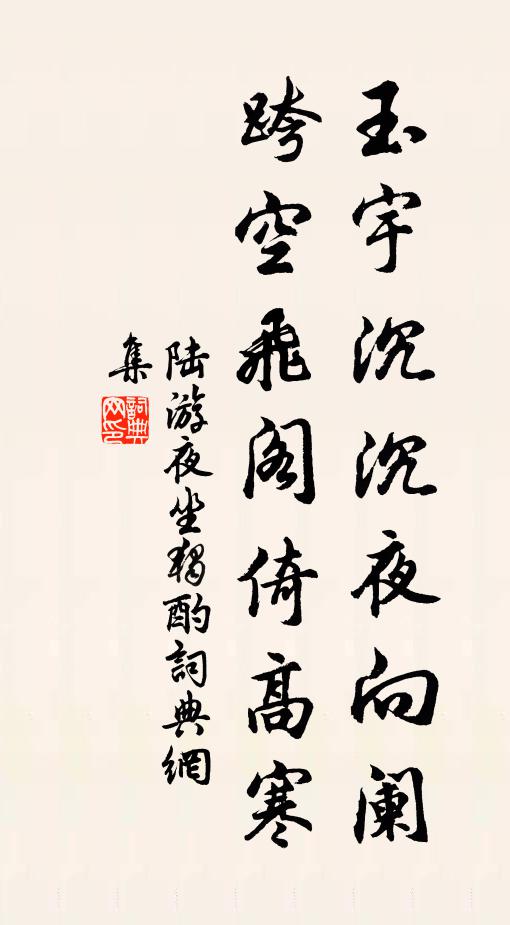 玉宇沉沉夜向阑
跨空飛阁倚高寒
陆游夜坐獨酌詞典網
集
詞典网印